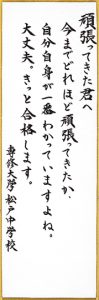 頑張ってきた君へ
今までどれほど頑張ってきたか、
自分自身が一番わかっていますよね。
大丈夫。きっと合格します。
専修大学松戸中学校